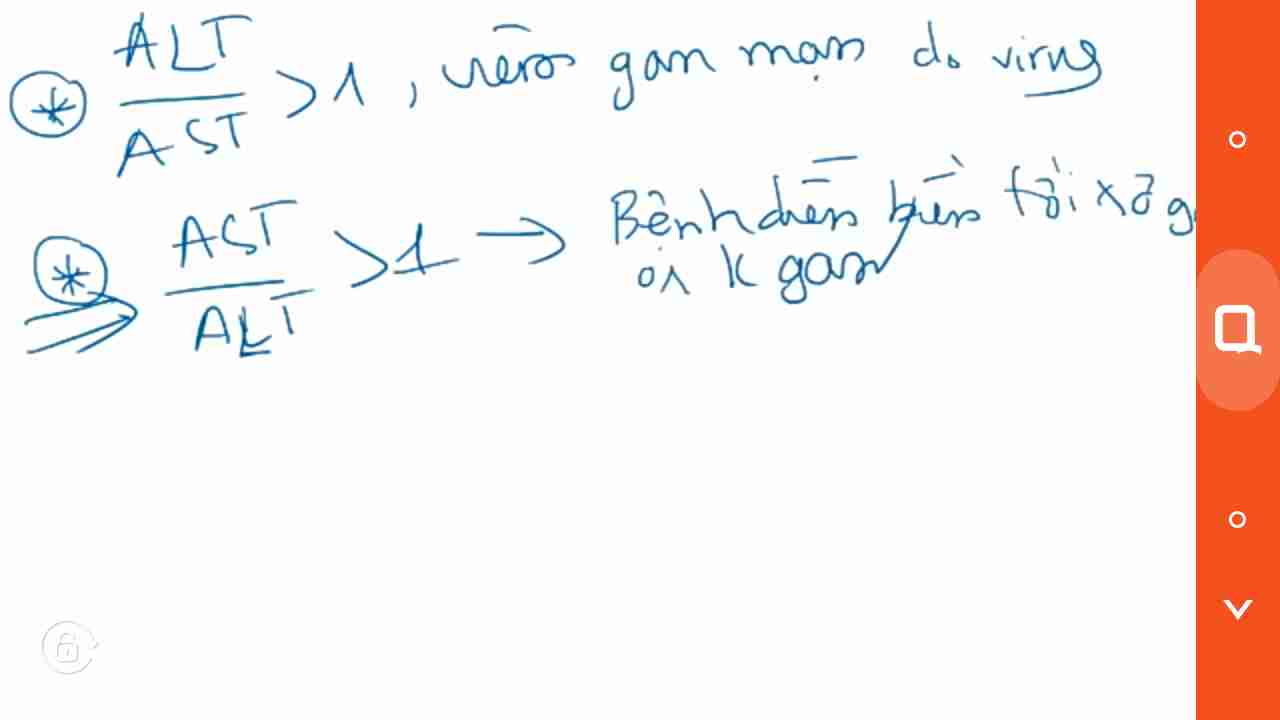 ALT/AST > 1, viêm gan mạn do virus
AST/ALT > 1 → Bệnh diễn biến tới xơ g
K gan